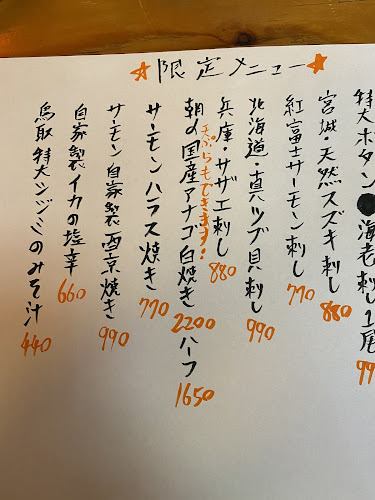 ★限定メニュー★
特大ボタン●海老刺し1尾
99
宮城・天然スズキ刺し
880
紅富士サーモン刺し
770
北海道・真ツブ貝刺し
990
兵庫・サザエ刺し
880
天ぷらもできます!
朝の国産アナゴ白焼き
2200
ハーフ
1650
サーモンハラス焼き
770
サーモン自家製西京焼き
990
自家製イカの塩辛
660
鳥取特大シジミのみそ汁
440